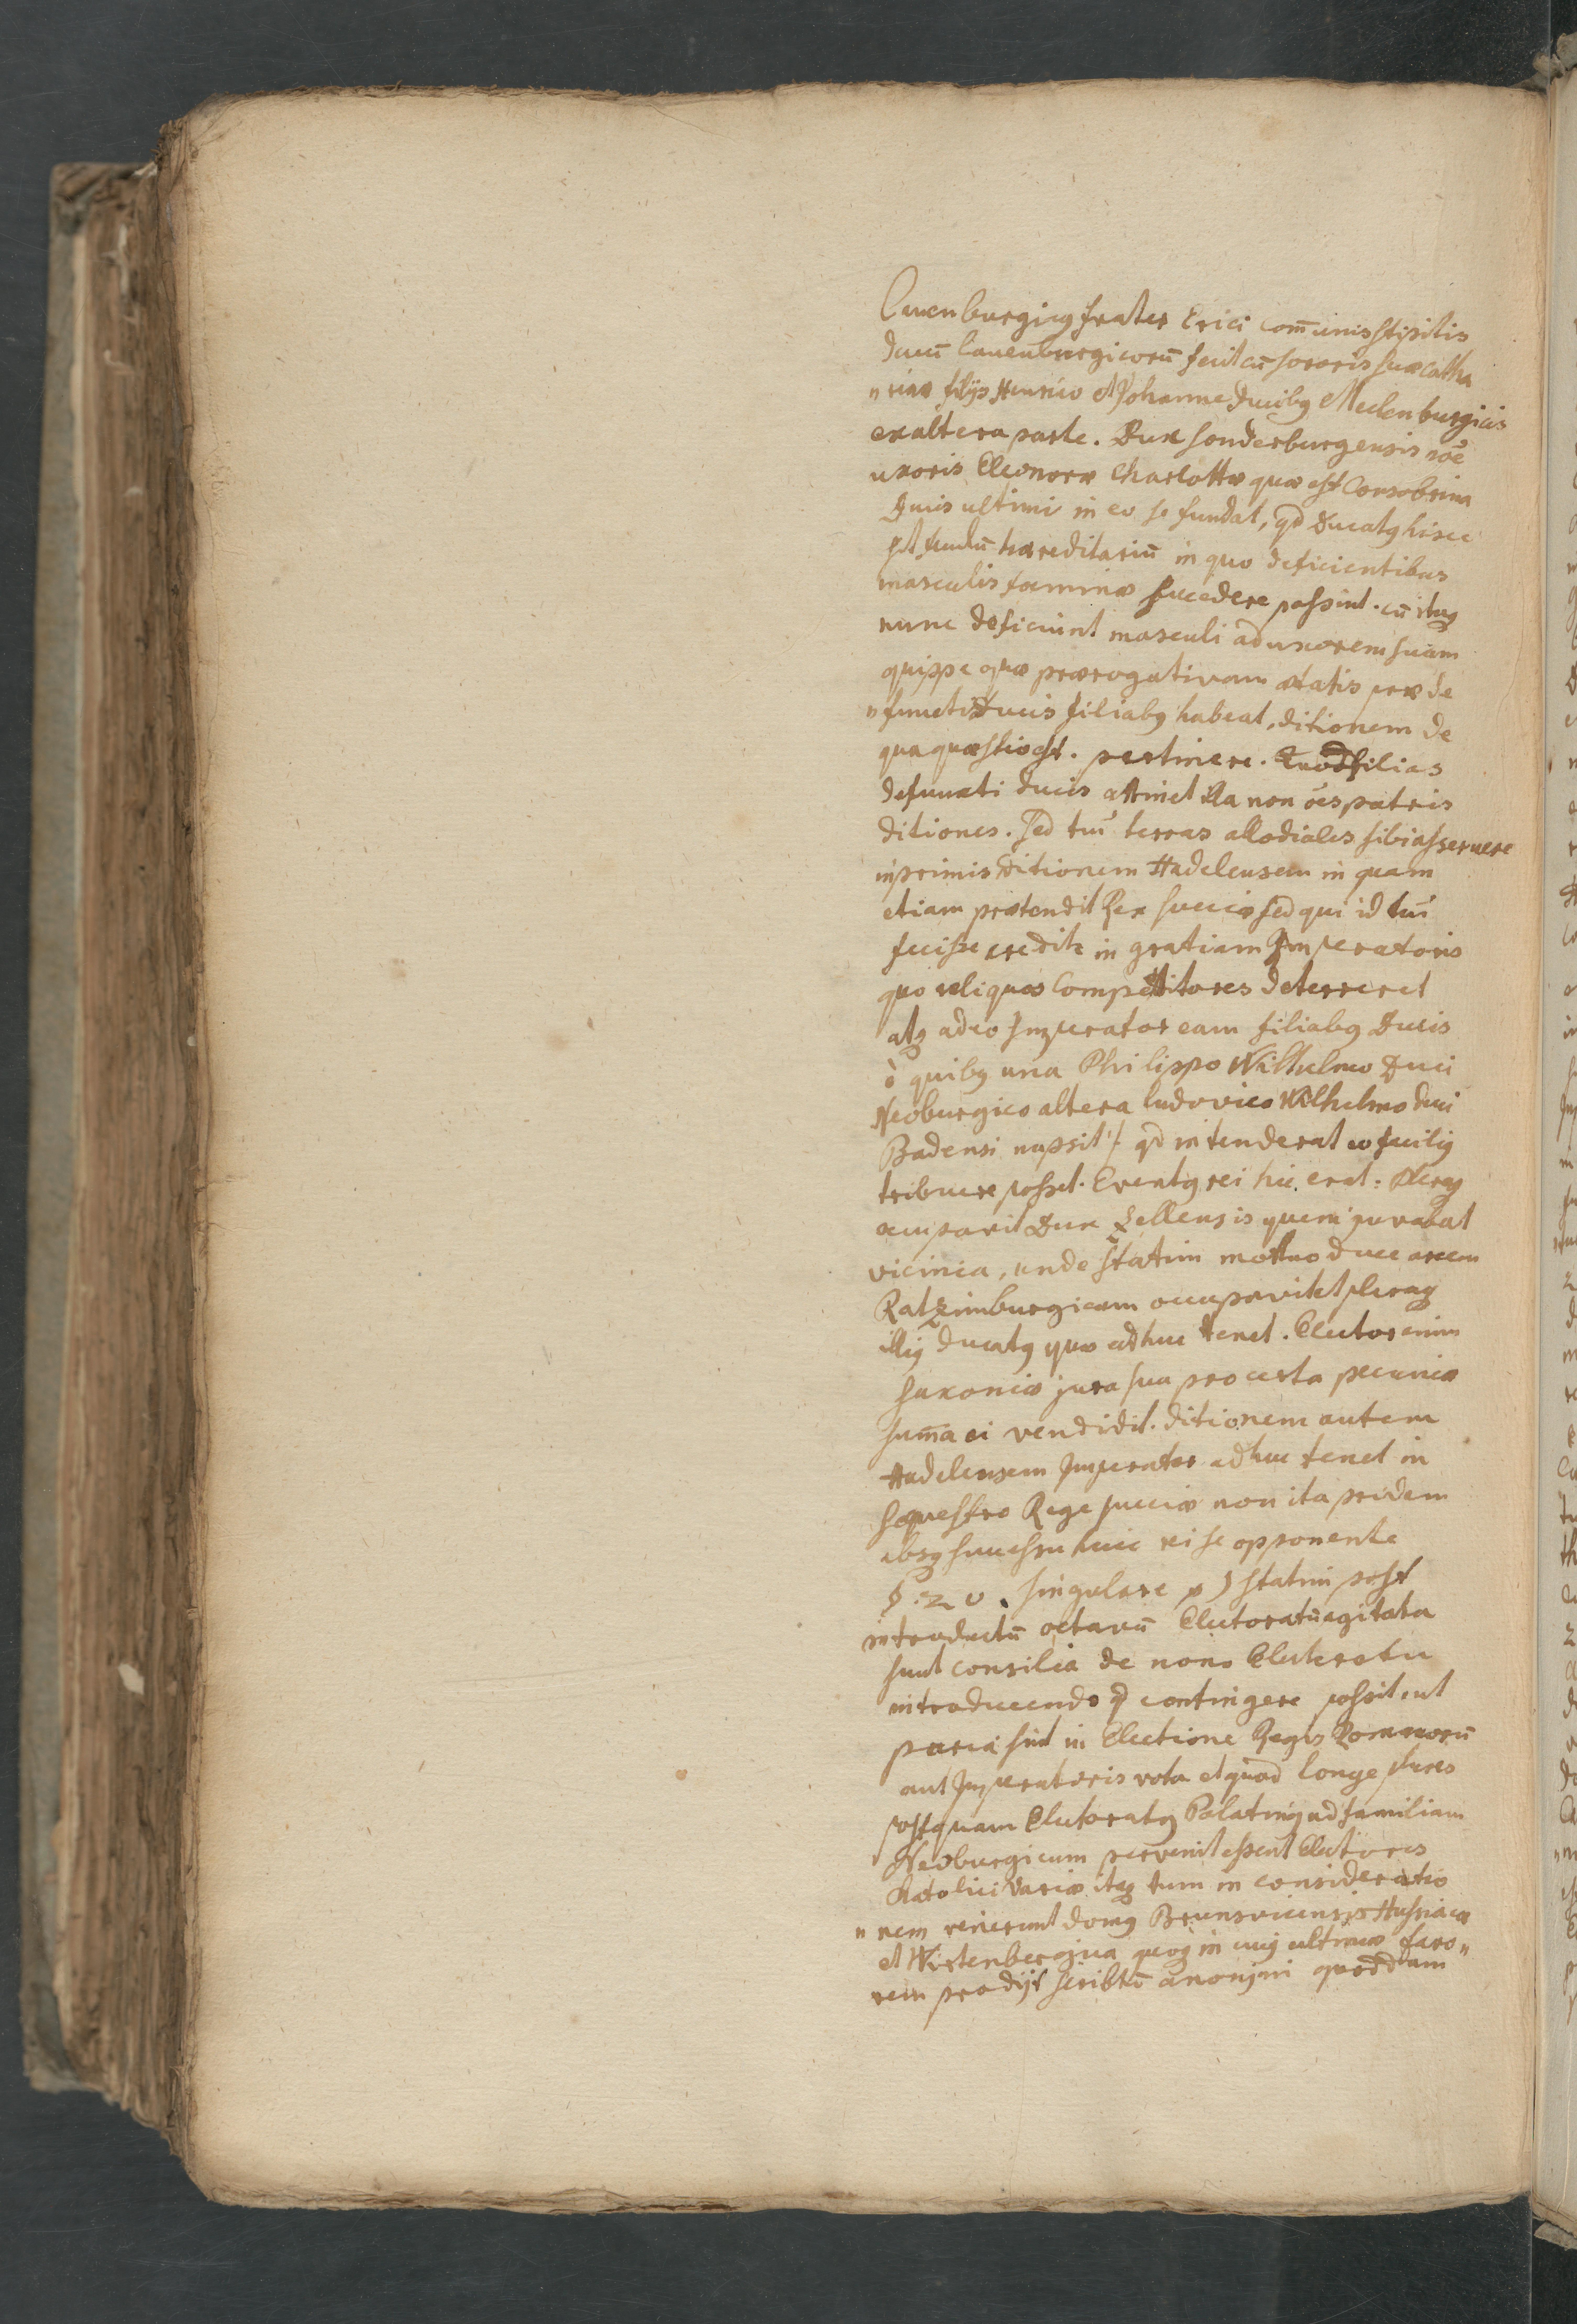 Lauenburgicus frater Erici com̄unis stipitis
ducū Lauenburgicorū fecit cū sororis suæ Catha
"rinæ filijs Henrico et Johanne Ducibus Meclenburgicis
ex altera parte. Dux Sonderburgensis noē
uxoris Eleonoræ Charlottæ quæ est Consobrina
Ducis ultimi in eo se fundat, qd Ducatus hisce
sit feudū hæreditariū in quo deficientibus
masculis foeminæ succedere possint. cū itaq
nunc deficiunt masculi ad uxorem suam
quippe quæ prærogativam ætatis præ de
"functi Ducis filiabus habeat, ditionem de
qua quæstio est. pertinere. Quod filias
defuncti ducis attinet illa non ōes patris
ditiones. sed tm̄ terras allodiales sibi asseruere
inprimis ditionem Hadelensem in quam
etiam prætendit Rex Sueciæ sed qui id tm̄
fecisse credit in gratiam Imperatoris
quo reliquos Competitores deterreret
atq adeo Imperator eam filiabus Ducis
è quibus una Philippo Wilhelmo Duci
Neoburgico altera Ludovico Wilhelmo duci
Badensi nupsit / qd intenderat eo facilius
tribuere posset. Eventus rei hic erat: Pleraq
occupavit Dux Zellensis quem juvabat
vicinia, unde statim mortuo duce arcem
Ratzeimburgicam occupavit et pleraq
illius ducatus quæ adhuc tenet. Elector enim
Saxoniæ jura sua pro certa pecuniæ
sum̄a ei vendidit. ditionem autem
Hadelensem Imperator adhuc tenet in
sequestro Rege Sueciæ non ita pridem
absq successu huic rei se opponente
§. 20. singulare statim post
introductū octavū Electoratū agitata
sunt consilia de nono Electoratu
introducendo qd contingere possit, ut
paria sint in Electione Regis Romanorū
aut Imperatoris vota et quod longe plures
postquam Electoratus Palatinus ad familiam
Neoburgicum pervenit essent Electores
Catolici variæ itaq tum in consideratio
"nem venerunt domus Brunsvicensis Hassiaca
et Wirtenbergica quoq in cujus ultimæ favo"
rem prodijt scribtū anonymi quoddam